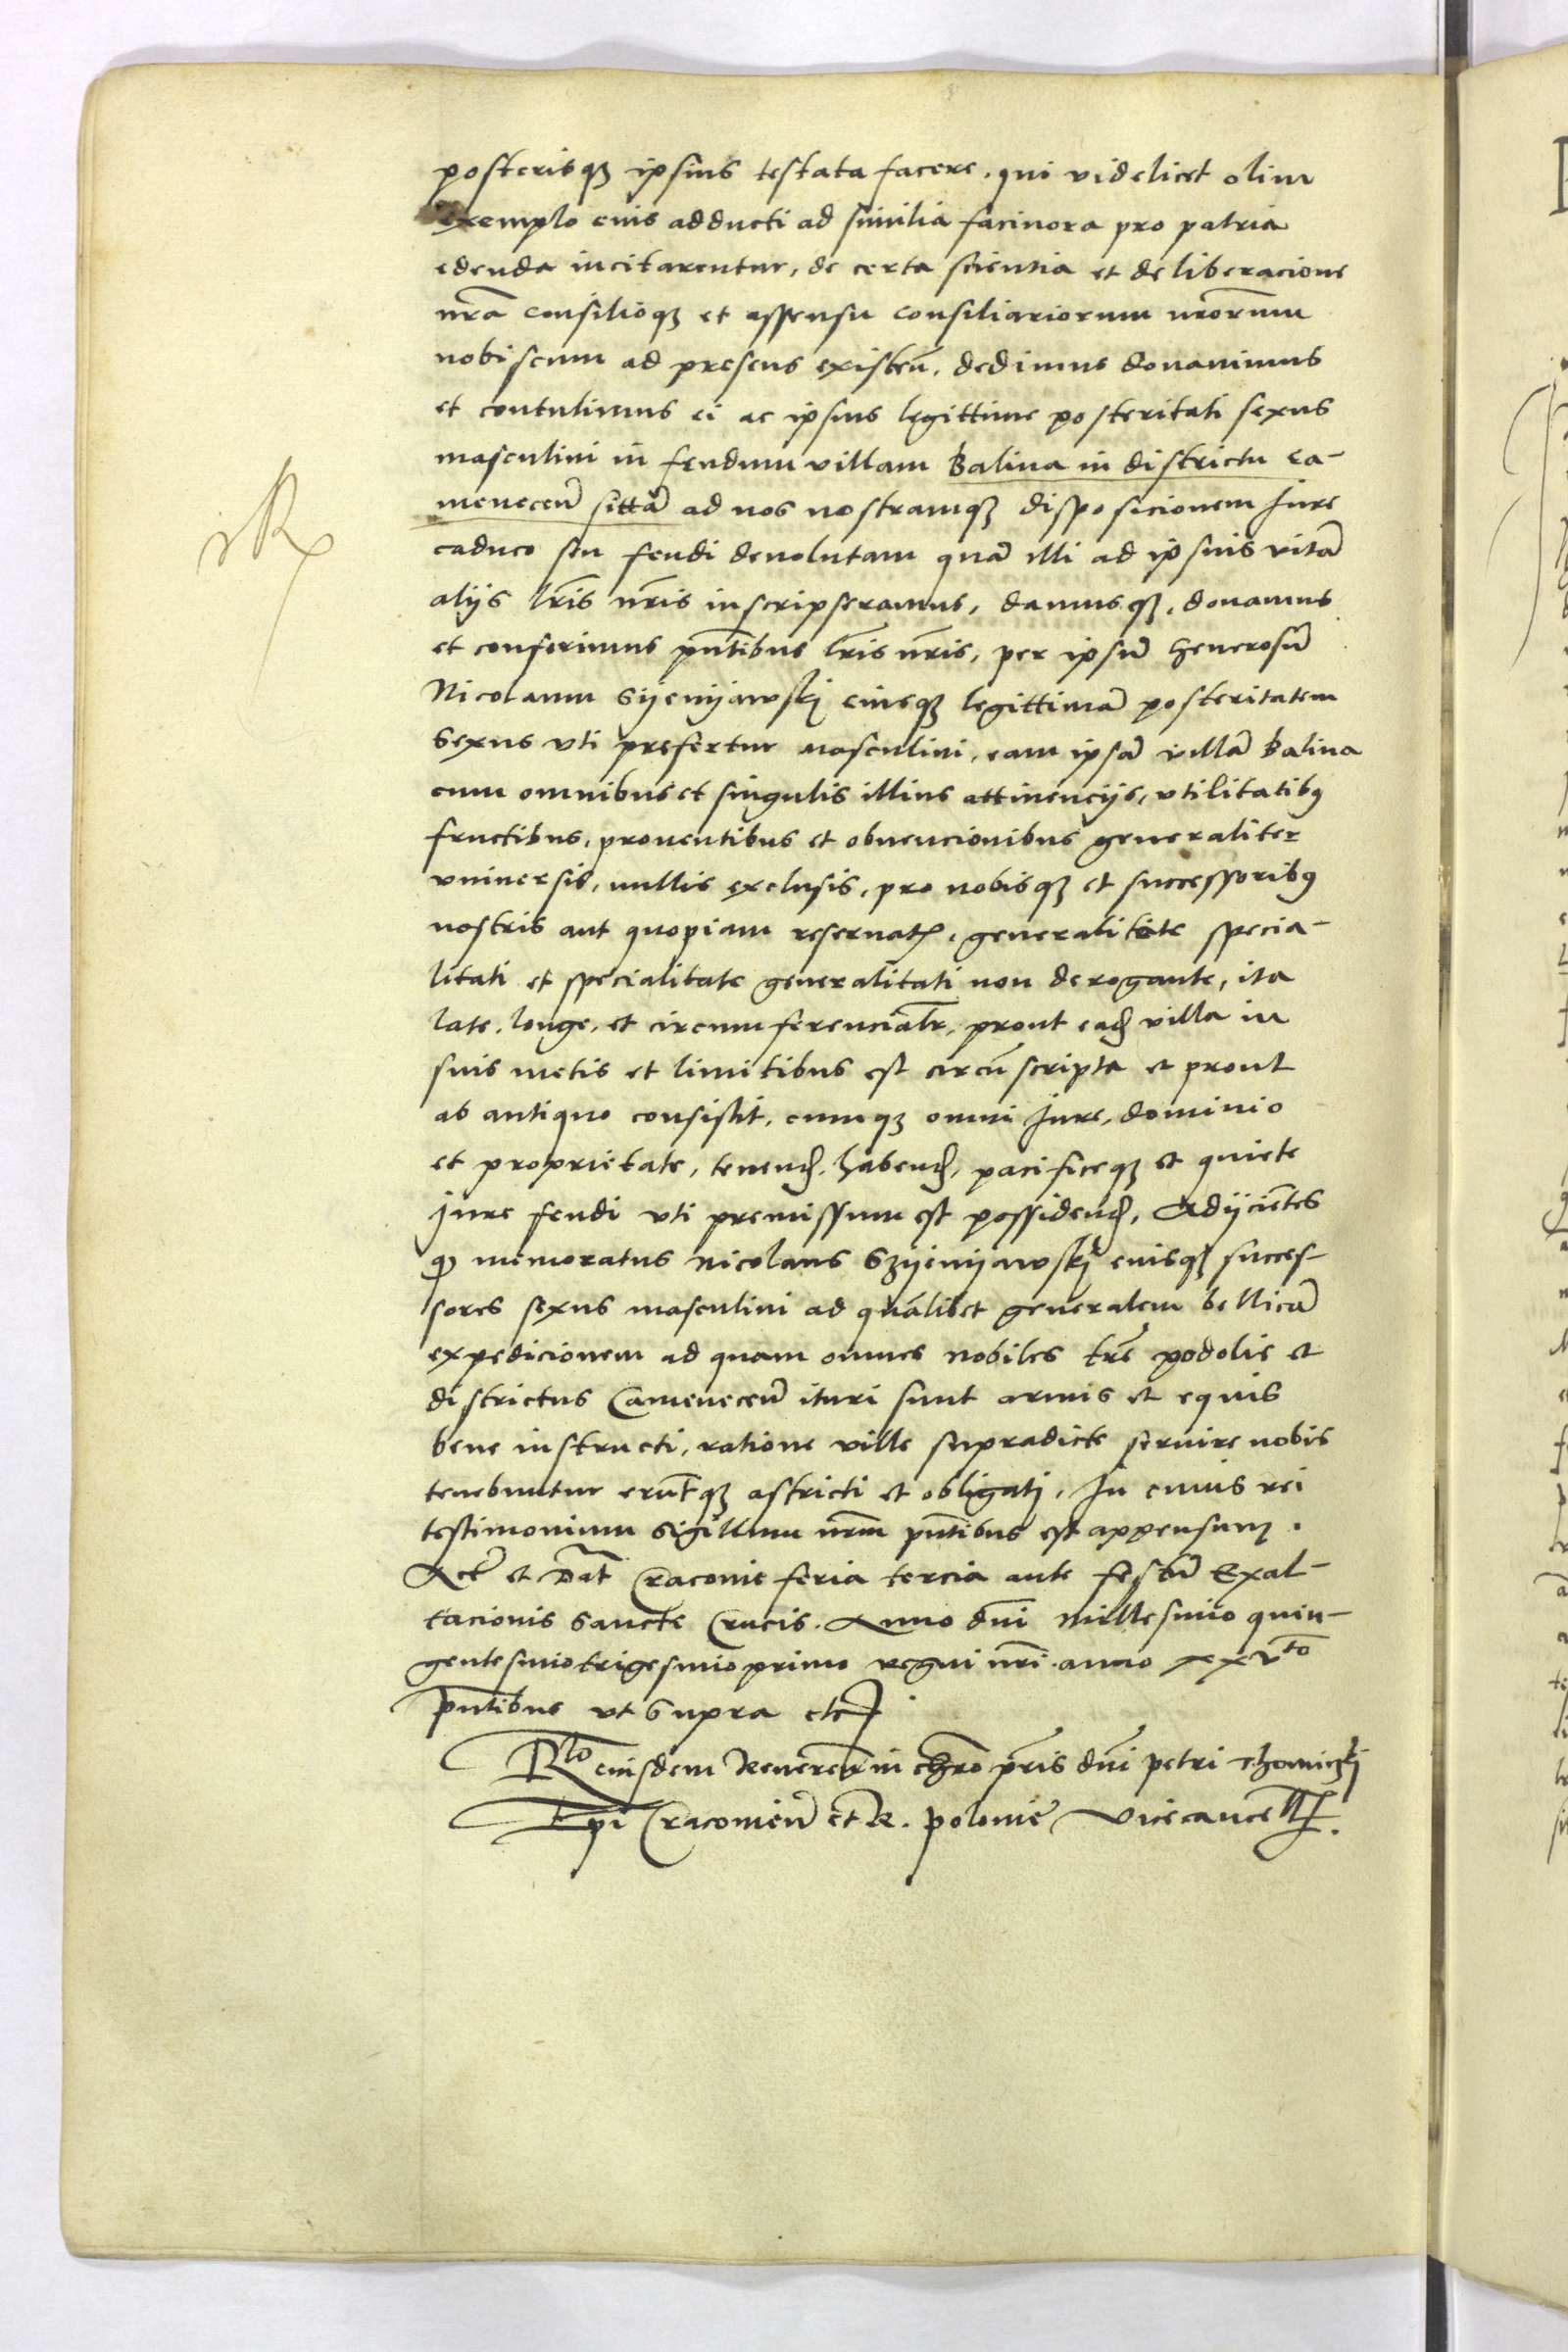 posterisq₃ ipsius testata facere, qui videlicet olim
exemplo eius adducti ad similia facinora pro patria
edenda incitarentur, de certa scientia et deliberacione
nrã consilioq₃ et assensu consiliariorum nrorum
nobiscum ad presens existeñ, dedimus donavimus
et contulimus ei ac ipsius legittime posteritati sexus
masculini in feudum villam Balina in districtu ca-
meneceñ sittã ad nos nostramq₃ disposicionem Jure
caduco seu feudi devolutam quã illi ad ipsius vitã
alijs lr̃is nr̃is inscripseramus, damusq₃, donamus
et conferimus pñtibus lr̃is nr̃is, per ipsũ Generosũ
Nicolaum Syenyawskj eiusq₃ legittimã posteritatem
sexus vti prefertur masculini, eam ipsã villã Balina
cum omnibus et singulis illius attinencijs, vtilitatibꝰ
fructibus, proventibus et obvencionibus generaliter
vniversis, nullis exclusis, pro nobisq₃ et successoribꝰ
nostris aut quopiam reservatꝭ, generalitate specia-
litati et specialitate generalitati non derogante, ita
late, longe, et circumferencialr̃, prout eadꝫ villa in
suis metis et limitibus est circũscripta et prout
ab antiquo consistit, cumq₃ omni Jure, dominio
et proprietate, tenendꝫ, habendꝫ, pacificeq₃ et quiete
Jure feudi vti premissum est possidendꝫ, Adijcientes
ꝙ memoratus Nicolaus Szyenyawskj eiusq₃ succes-
sores sexus masculini ad quãlibet generalem bellicã
expedicionem ad quam omnes nobiles tr̃e podolie et
districtus Cameneceñ ituri sunt armis et equis
bene instructi, ratione ville supradicte servire nobis
tenebuntur erũtq₃ astricti et obligatj, In cuius rei
testimonium sigillum nr̃um pñtibus est appensum.
Actũ et Dat̃ Cracovie feria tercia ante festũ Exal-
tacionis Sancte Crucis. Anno dñi Millesimo quin-
gentesimo trigesimo primo regni nr̃i anno xxvto
pñtibus vt supra etc
Rlo eiusdem Reveren̄ in chr̃o pr̃is dñi petri Thomiczkj
Epĩ Cracovieñ et R. polonie Vicecancell̃.